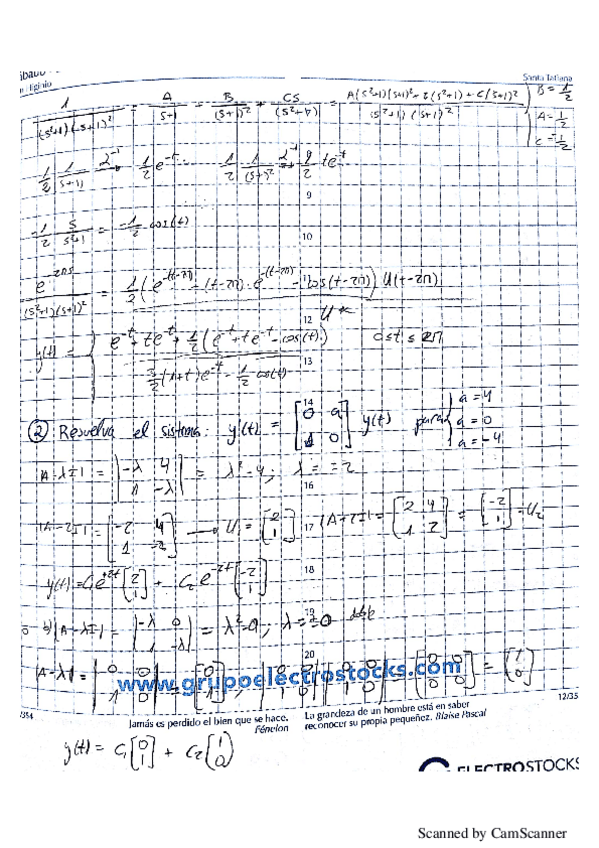 Santa Tatiana
1/((s²+1)(s+1)²) = A/(s+1) + B/(s+1)² + CS/(s²+1) = A(s²+1)(s+1)² + (s²+1) + C(s+1)² / (s²+1)(s+1)² B = 1/2
A = 1/2
C = -1/2
1/2 1/(s+1) → 1/2 e^-t 1/2 1/(s+1)² → 1/2 te^-t
9
-1/2 s/(s²+1) = -1/2 cos(t)
10
11
/((s²+1)(s+1)²) = 1/2 (e^-(t-2π) + (t-2π) · e^-(t-2π) - cos(t-2π)) U(t-2π)
12
y(t) = { e^-t + te^-t + 1/2 (e^-t + te^-t - cos(t)) 0≤t≤2π
13
3/2 (1+t)e^-t - 1/2 cos(t)
14
② Resuelva el sistema: y'(t) = [0 a; 1 0] y(t) para { a = 4
a = 0
a = -4
|A-λI| = |-λ 4; 1 -λ| = λ²-4; λ = ±2
16
|A-2I| = [-2 4; 1 -2] → U₁ = [2; 1] |A+2I| = [2 4; 1 2] = [-2; 1] = U₂
17
18
y(t) = C₁e^+2t [2; 1] + C₂e^-2t [-2; 1]
19
b) |A-λI| = |-λ 0; 1 -λ| = λ²=0; λ = 0 doble
20
www.grupoelectrostocks.com
12/35
Jamás es perdido el bien que se hace.
Fénelon
La grandeza de un hombre está en saber
reconocer su propia pequeñez. Blaise Pascal
y(t) = C₁ [0; 1] + C₂ [1; 0]
ELECTROSTOCKS
Scanned by CamScanner